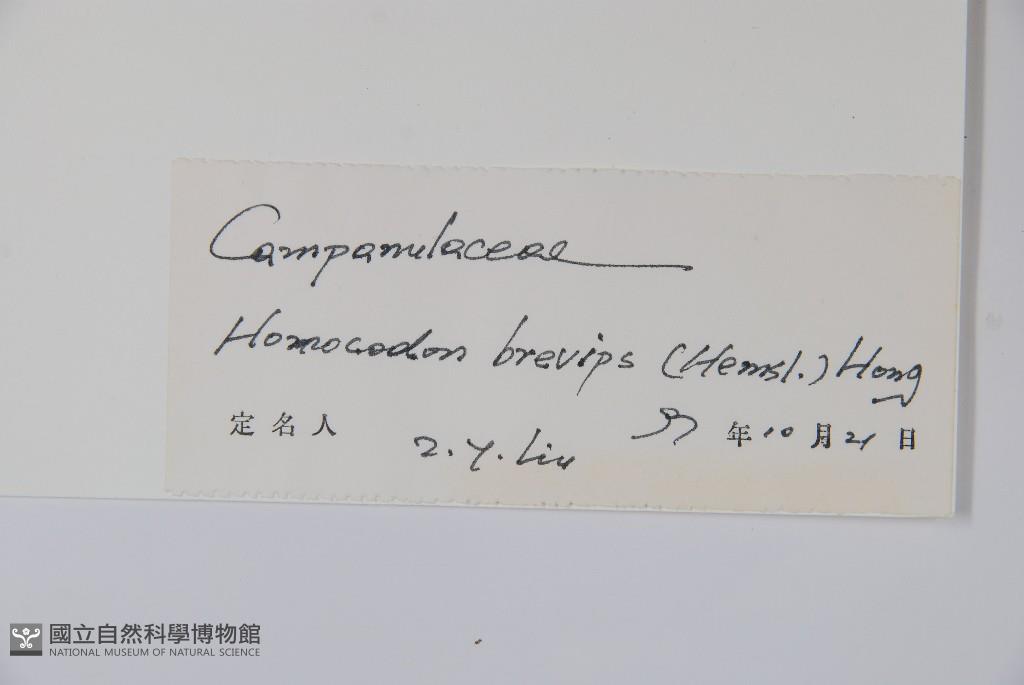 Campanulaceae
Homocodon brevips (Hemsl.) Hong
定名人 Z. Y. Liu 年 10 月 21 日
國立自然科學博物館
NATIONAL MUSEUM OF NATURAL SCIENCE